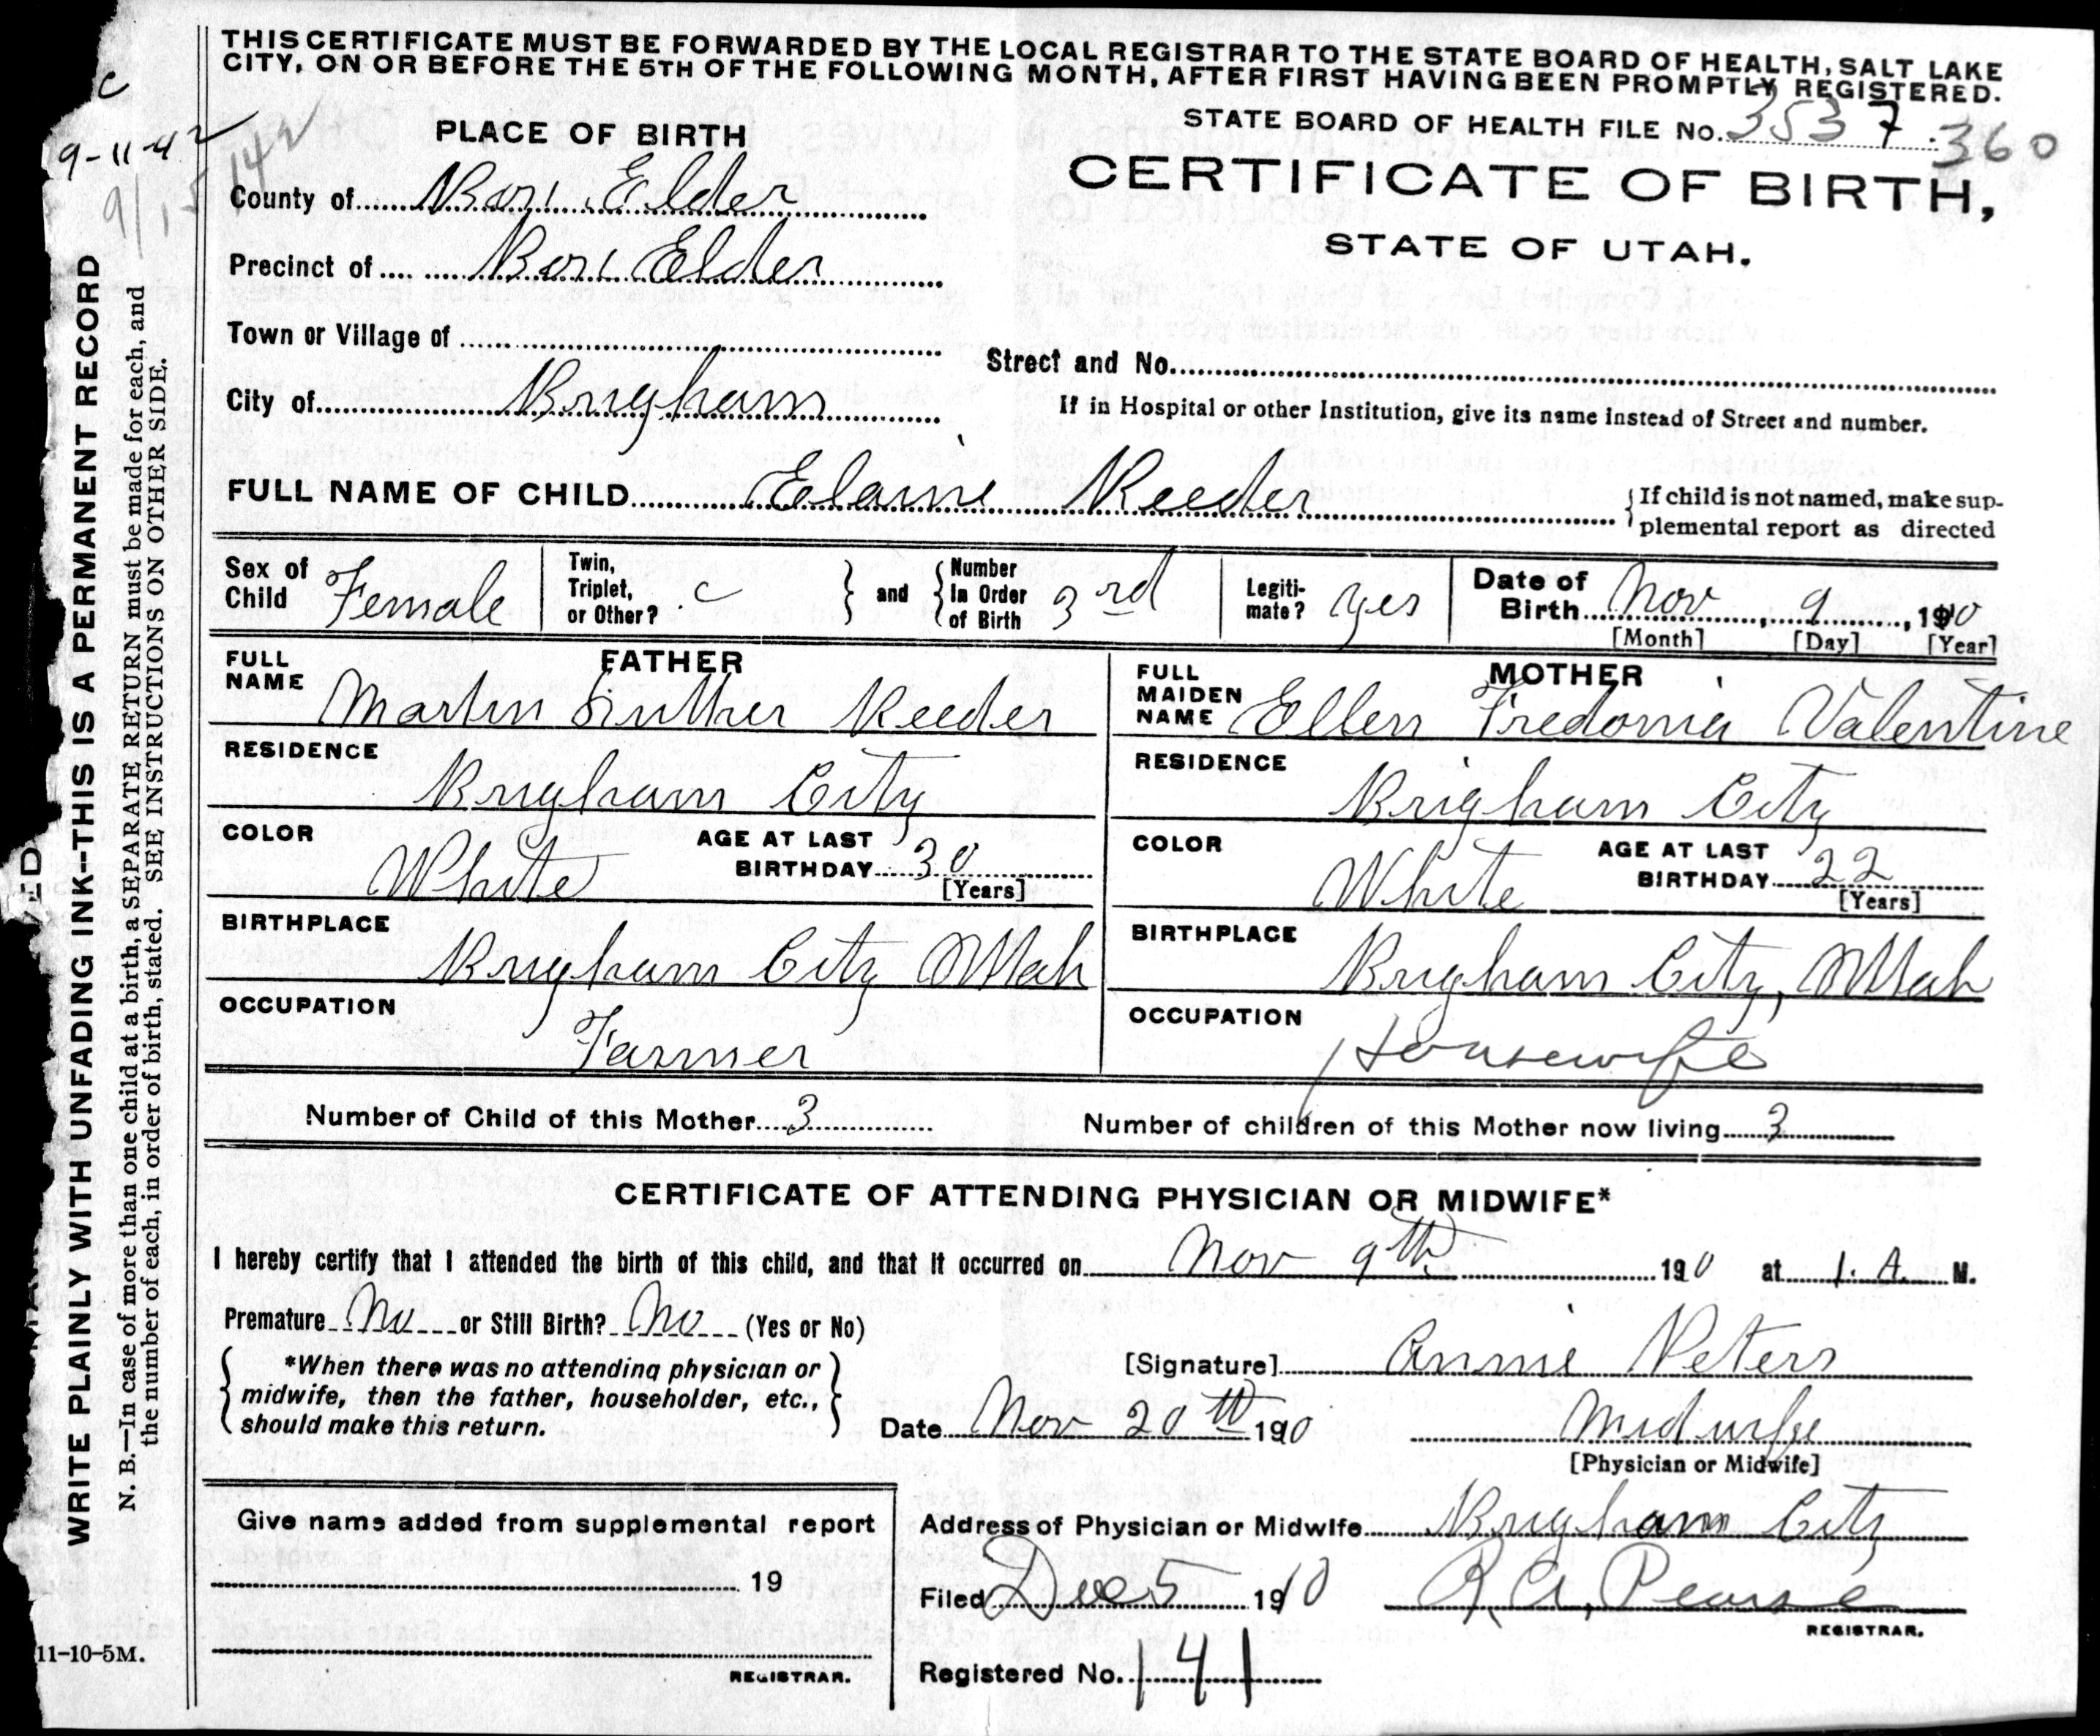 THIS CERTIFICATE MUST BE FORWARDED BY THE LOCAL REGISTRAR TO THE STATE BOARD OF HEALTH, SALT LAKE
CITY, ON OR BEFORE THE 5TH OF THE FOLLOWING MONTH, AFTER FIRST HAVING BEEN PROMPTLY REGISTERED.
c
9-11-42
9/15/42
STATE BOARD OF HEALTH FILE No. 3537 . 360
CERTIFICATE OF BIRTH,
STATE OF UTAH.
PLACE OF BIRTH
County of Box Elder
Precinct of Box Elder
Town or Village of
Street and No.
City of Brigham
If in Hospital or other Institution, give its name instead of Street and number.
FULL NAME OF CHILD Elaine Reeder
{If child is not named, make sup-
plemental report as directed
Sex of Child Female
Twin, Triplet, or Other? c } and { Number In Order of Birth 3rd
Legiti-mate? yes
Date of Birth Nov 9, 1910
[Month] [Day] [Year]
FATHER
FULL NAME Martin Luther Reeder
RESIDENCE Brigham City
COLOR White AGE AT LAST BIRTHDAY 30 [Years]
BIRTHPLACE Brigham City Utah
OCCUPATION Farmer
MOTHER
FULL MAIDEN NAME Ellen Fredonia Valentine
RESIDENCE Brigham City
COLOR White AGE AT LAST BIRTHDAY 22 [Years]
BIRTHPLACE Brigham City, Utah
OCCUPATION Housewife
Number of Child of this Mother 3 Number of children of this Mother now living 3
CERTIFICATE OF ATTENDING PHYSICIAN OR MIDWIFE*
I hereby certify that I attended the birth of this child, and that it occurred on Nov 9th 1910 at 1. A. M.
Premature No or Still Birth? No (Yes or No)
{ *When there was no attending physician or
midwife, then the father, householder, etc.,
should make this return. }
[Signature] Annie Peters
Date Nov 20th 1910 Midwife
[Physician or Midwife]
Give name added from supplemental report
19
REGISTRAR.
Address of Physician or Midwife Brigham City
Filed Dec 5 1910 R. A. Pearse
REGISTRAR.
Registered No. 141
WRITE PLAINLY WITH UNFADING INK--THIS IS A PERMANENT RECORD
N. B.—In case of more than one child at a birth, a SEPARATE RETURN must be made for each, and
the number of each, in order of birth, stated. SEE INSTRUCTIONS ON OTHER SIDE.
11-10-5M.